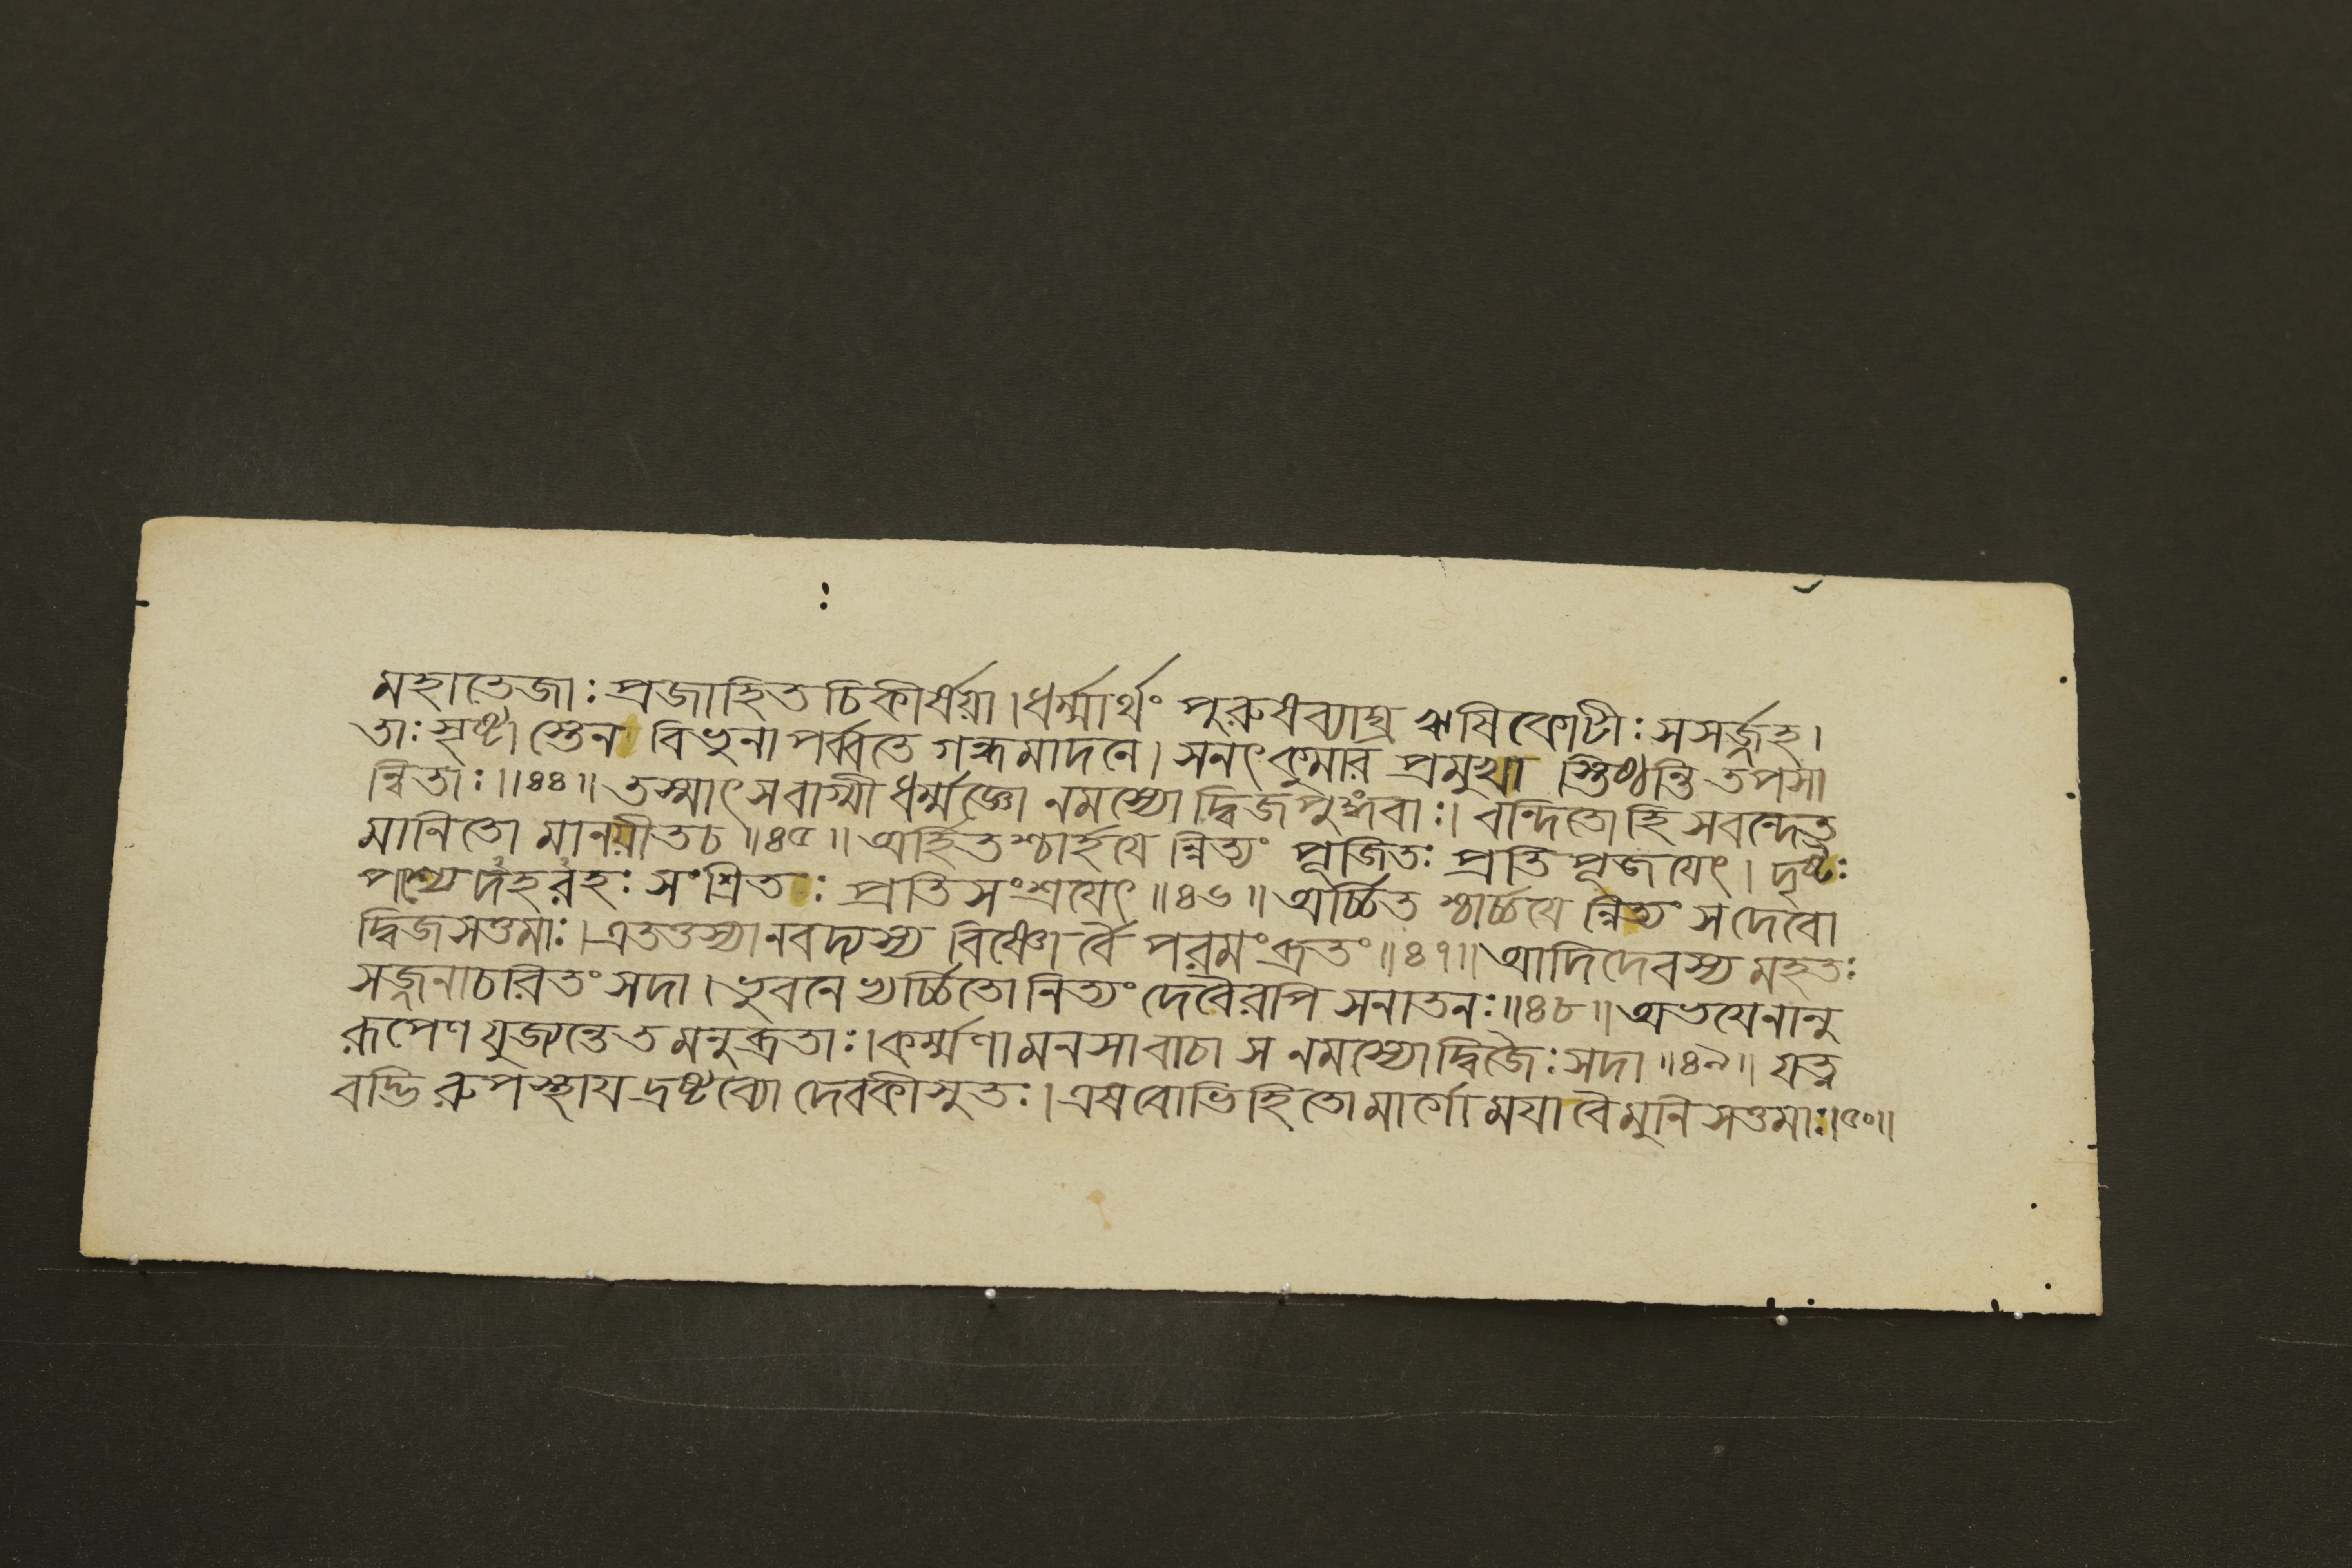 মহাতেজাঃ প্রজাহিত চিকীর্ষয়া। ধর্ম্মার্থং পুরুষব্যাঘ্র ঋষি কোটীঃ সসর্জ্জহ।
তাঃ সৃষ্টা স্তেন বিভুনা পর্ব্বতে গন্ধমাদনে। সনৎকুমার প্রমুখা স্তিষ্ঠন্তি তপসা
ন্বিতাঃ॥৪৪॥ তস্মাৎ সবাগ্মী ধর্ম্মজ্ঞো নমস্যো দ্বিজপুঙ্গবাঃ। বন্দিতো হি সবন্দেত
মানিতো মানয়ীতচ॥৪৫॥ অর্হিত শ্চার্হয়ে ন্নিত্যং পূজিতঃ প্রতি পূজয়েৎ। দৃষ্টঃ
পশ্যে দহরহঃ সংশ্রিতঃ প্রতিসংশ্রয়েৎ॥৪৬॥ অর্চ্চিত শ্চার্চ্চয়ে ন্নিত্যং স দেবো
দ্বিজসত্তমাঃ। এতত্তস্যানবদ্যস্য বিষ্ণো র্বৈ পরমংব্রতং॥৪৭॥ আদিদেবস্য মহতঃ
সজ্জনাচরিতং সদা। ভুবনে ভ্যর্চ্চিতো নিত্যং দেবৈরপি সনাতনঃ॥৪৮॥ অভয়েনানু
রূপেণ যুজ্যন্তে ত মনুব্রতাঃ। কর্ম্মণা মনসা বাচা স নমস্যো দ্বিজৈঃ সদা॥৪৯॥ যত্ন
বদ্ভি রুপস্থায় দ্রষ্টব্যো দেবকীসুতঃ। এষ বোভিহিতো মার্গো ময়া বৈ মুনি সত্তমাঃ।৫০॥